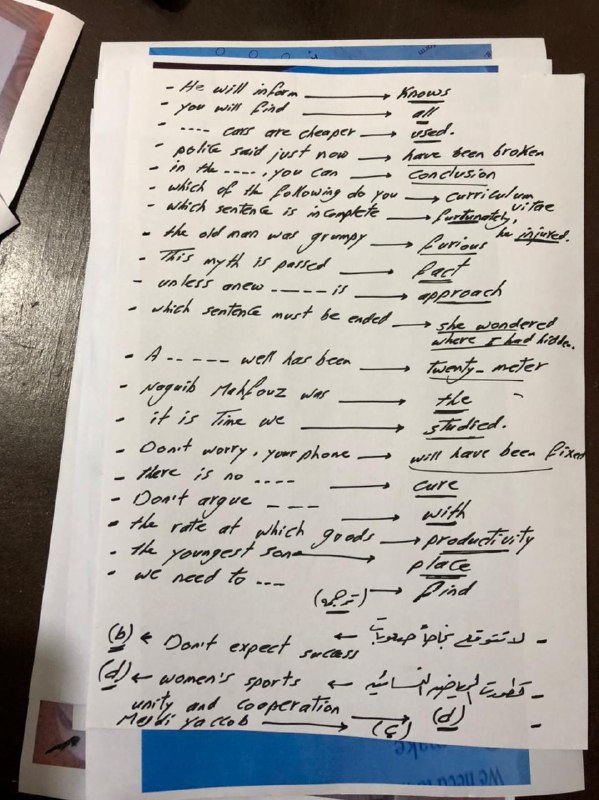 - He will inform → Knows
- you will find → all
- ---- cars are cheaper → used.
- police said just now → have been broken
- in the ----, you can → conclusion
- which of the following do you → curriculum vitae
- which sentence is incomplete → furtunately, he injured.
- the old man was grumpy → furious
- This myth is passed → fact
- unless anew ----- is → approach
- which sentence must be ended → she wondered where I had hidden.
- A ----- well has been → twenty-meter
- Naguib Mahfouz was → the
- it is Time we → studied.
- Don't worry, your phone → will have been fixed
- there is no ---- → cure
- Don't argue ---- → with
- the rate at which goods → productivity
- the youngest son → place
- we need to --- → find
(ترجمة)
- لا تتوقع نجاحاً → Don't expect success → (b)
- women's sports → (d)
unity and cooperation → (d)
Merdi Yaccob → (ج) -
we need to
make